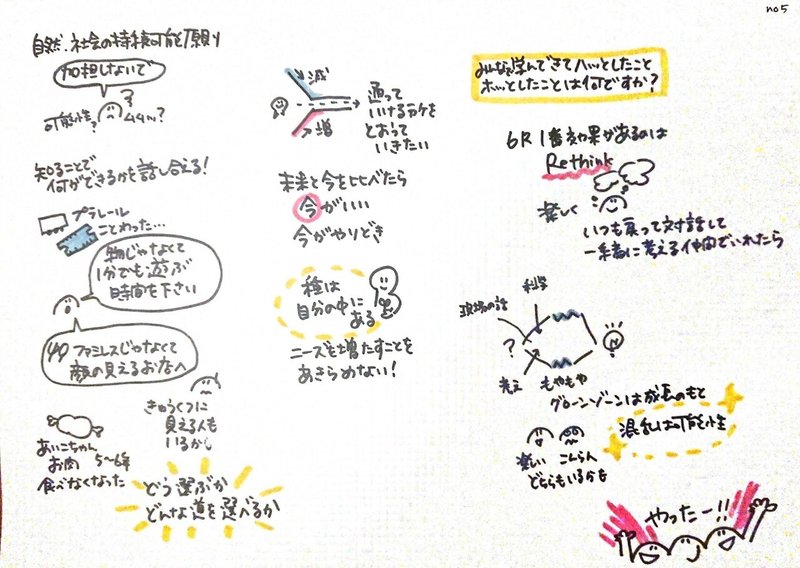 no5
自然、社会の持続可能を願り
加担しないで
可能性?
?
知ることで
何ができるかを話し合える!
プラレール
ことわった…
物じゃなくて
1分でも遊ぶ
時間を下さい
ファミレスじゃなくて
顔の見えるお店へ
きゅうくつに
見える人も
いるかも
あいこちゃん
お肉 5〜6年
食べなくなった
どう選ぶか
どんな道を選べるか
減
増
通って
いける方を
とおって
いきたい
未来と今を比べたら
今がいい
今がやりどき
種は
自分の中に
ある
ニーズも増たすことを
あきらめない!
みんな学んできてハッとしたこと
ホッとしたことは何ですか?
6R 1番効果があるのは
Rethink
楽しく
いつも戻って対話して
一緒に考える仲間でいれたら
科学
現場の話
?
考え
もやもや
グローンゾーンは成長のもと
混乱は可能性
楽しい こんらん
どちらもいるかも
やったー!!